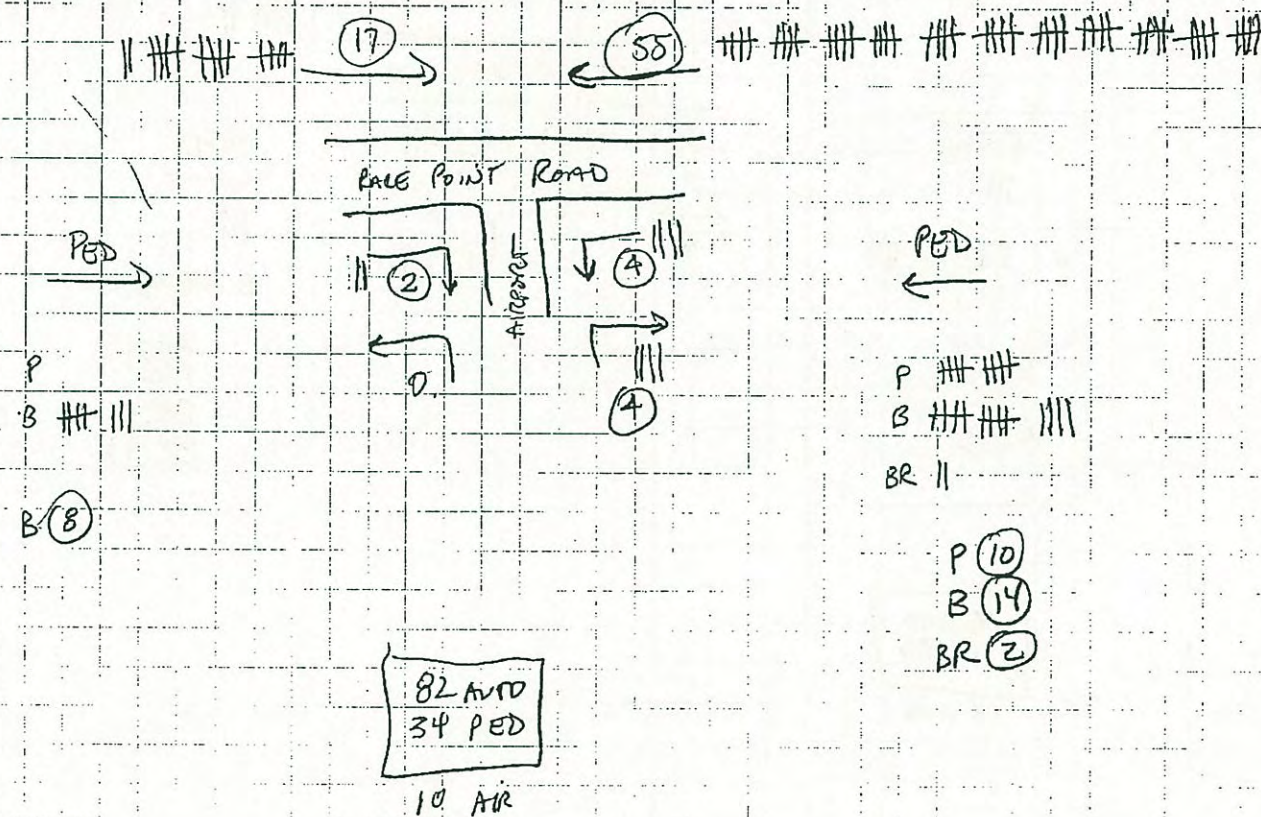 17
55
RACE POINT ROAD
AIRPORT
PED
2
4
0
4
PED
P
B
B 8
P
B
BR
P 10
B 14
BR 2
82 AUTO
34 PED
10 AIR